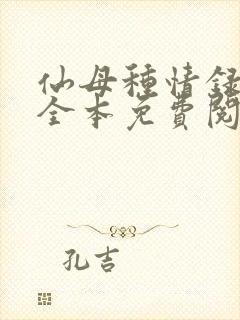 仙母種情録
全本免費閱
孔吉